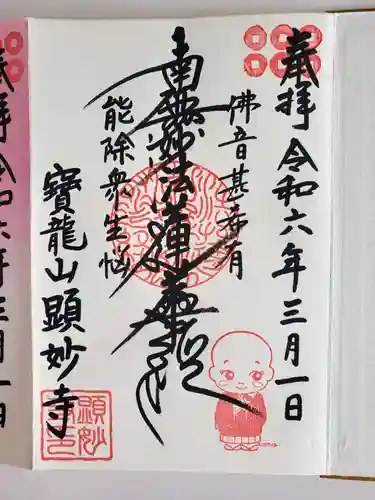 奉拝 令和六年三月一日
佛音甚希有
南無妙法蓮華経
能除衆生悩
寶龍山顕妙寺
奉拝 令和六年三月一日